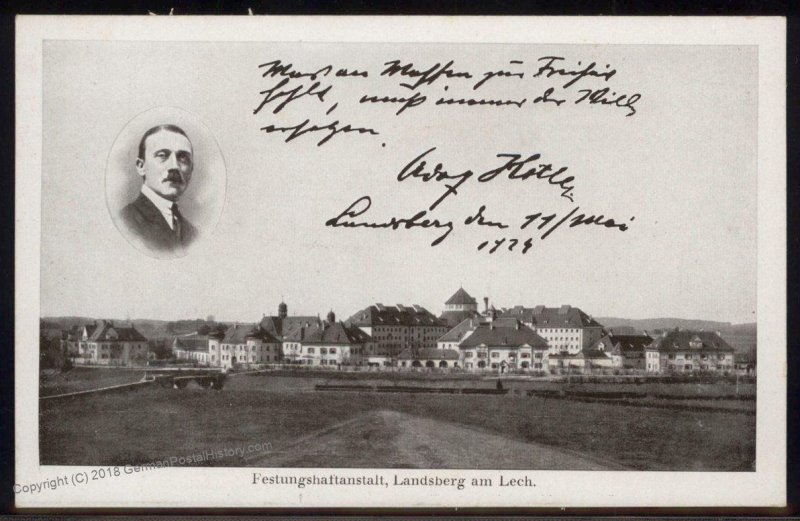 Was an Waffen zur Freiheit
fehlt, muß immer der Wille
ersetzen.
Adolf Hitler
Landsberg den 11/Mai
1924
Copyright (C) 2018 GermanPostalHistory.com
Festungshaftanstalt, Landsberg am Lech.